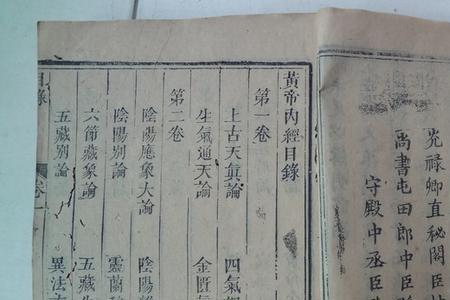 黃帝內經目錄
第一卷
上古天眞論
四氣
生氣通天論
金匱
第二卷
陰陽應象大論
陰陽
陰陽別論
靈蘭
六節藏象論
五藏
五藏別論
異法
目錄
卷一
光禄卿直秘閣臣
尚書屯田郎中臣
守殿中丞臣